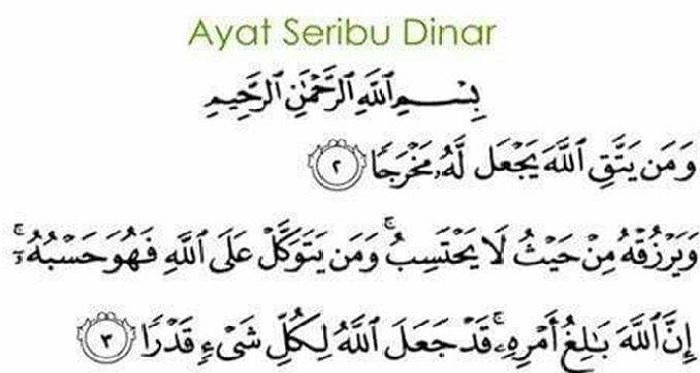 Ayat Seribu Dinar
بِسْمِ اللَّهِ الرَّحْمَٰنِ الرَّحِيمِ
وَمَن يَتَّقِ اللَّهَ يَجْعَل لَّهُۥ مَخْرَجًا ٢
وَيَرْزُقْهُ مِنْ حَيْثُ لَا يَحْتَسِبُ ۚ وَمَن يَتَوَكَّلْ عَلَى اللَّهِ فَهُوَ حَسْبُهُۥٓ ۚ
إِنَّ اللَّهَ بَٰلِغُ أَمْرِهِۦ ۚ قَدْ جَعَلَ اللَّهُ لِكُلِّ شَىْءٍ قَدْرًا ٣